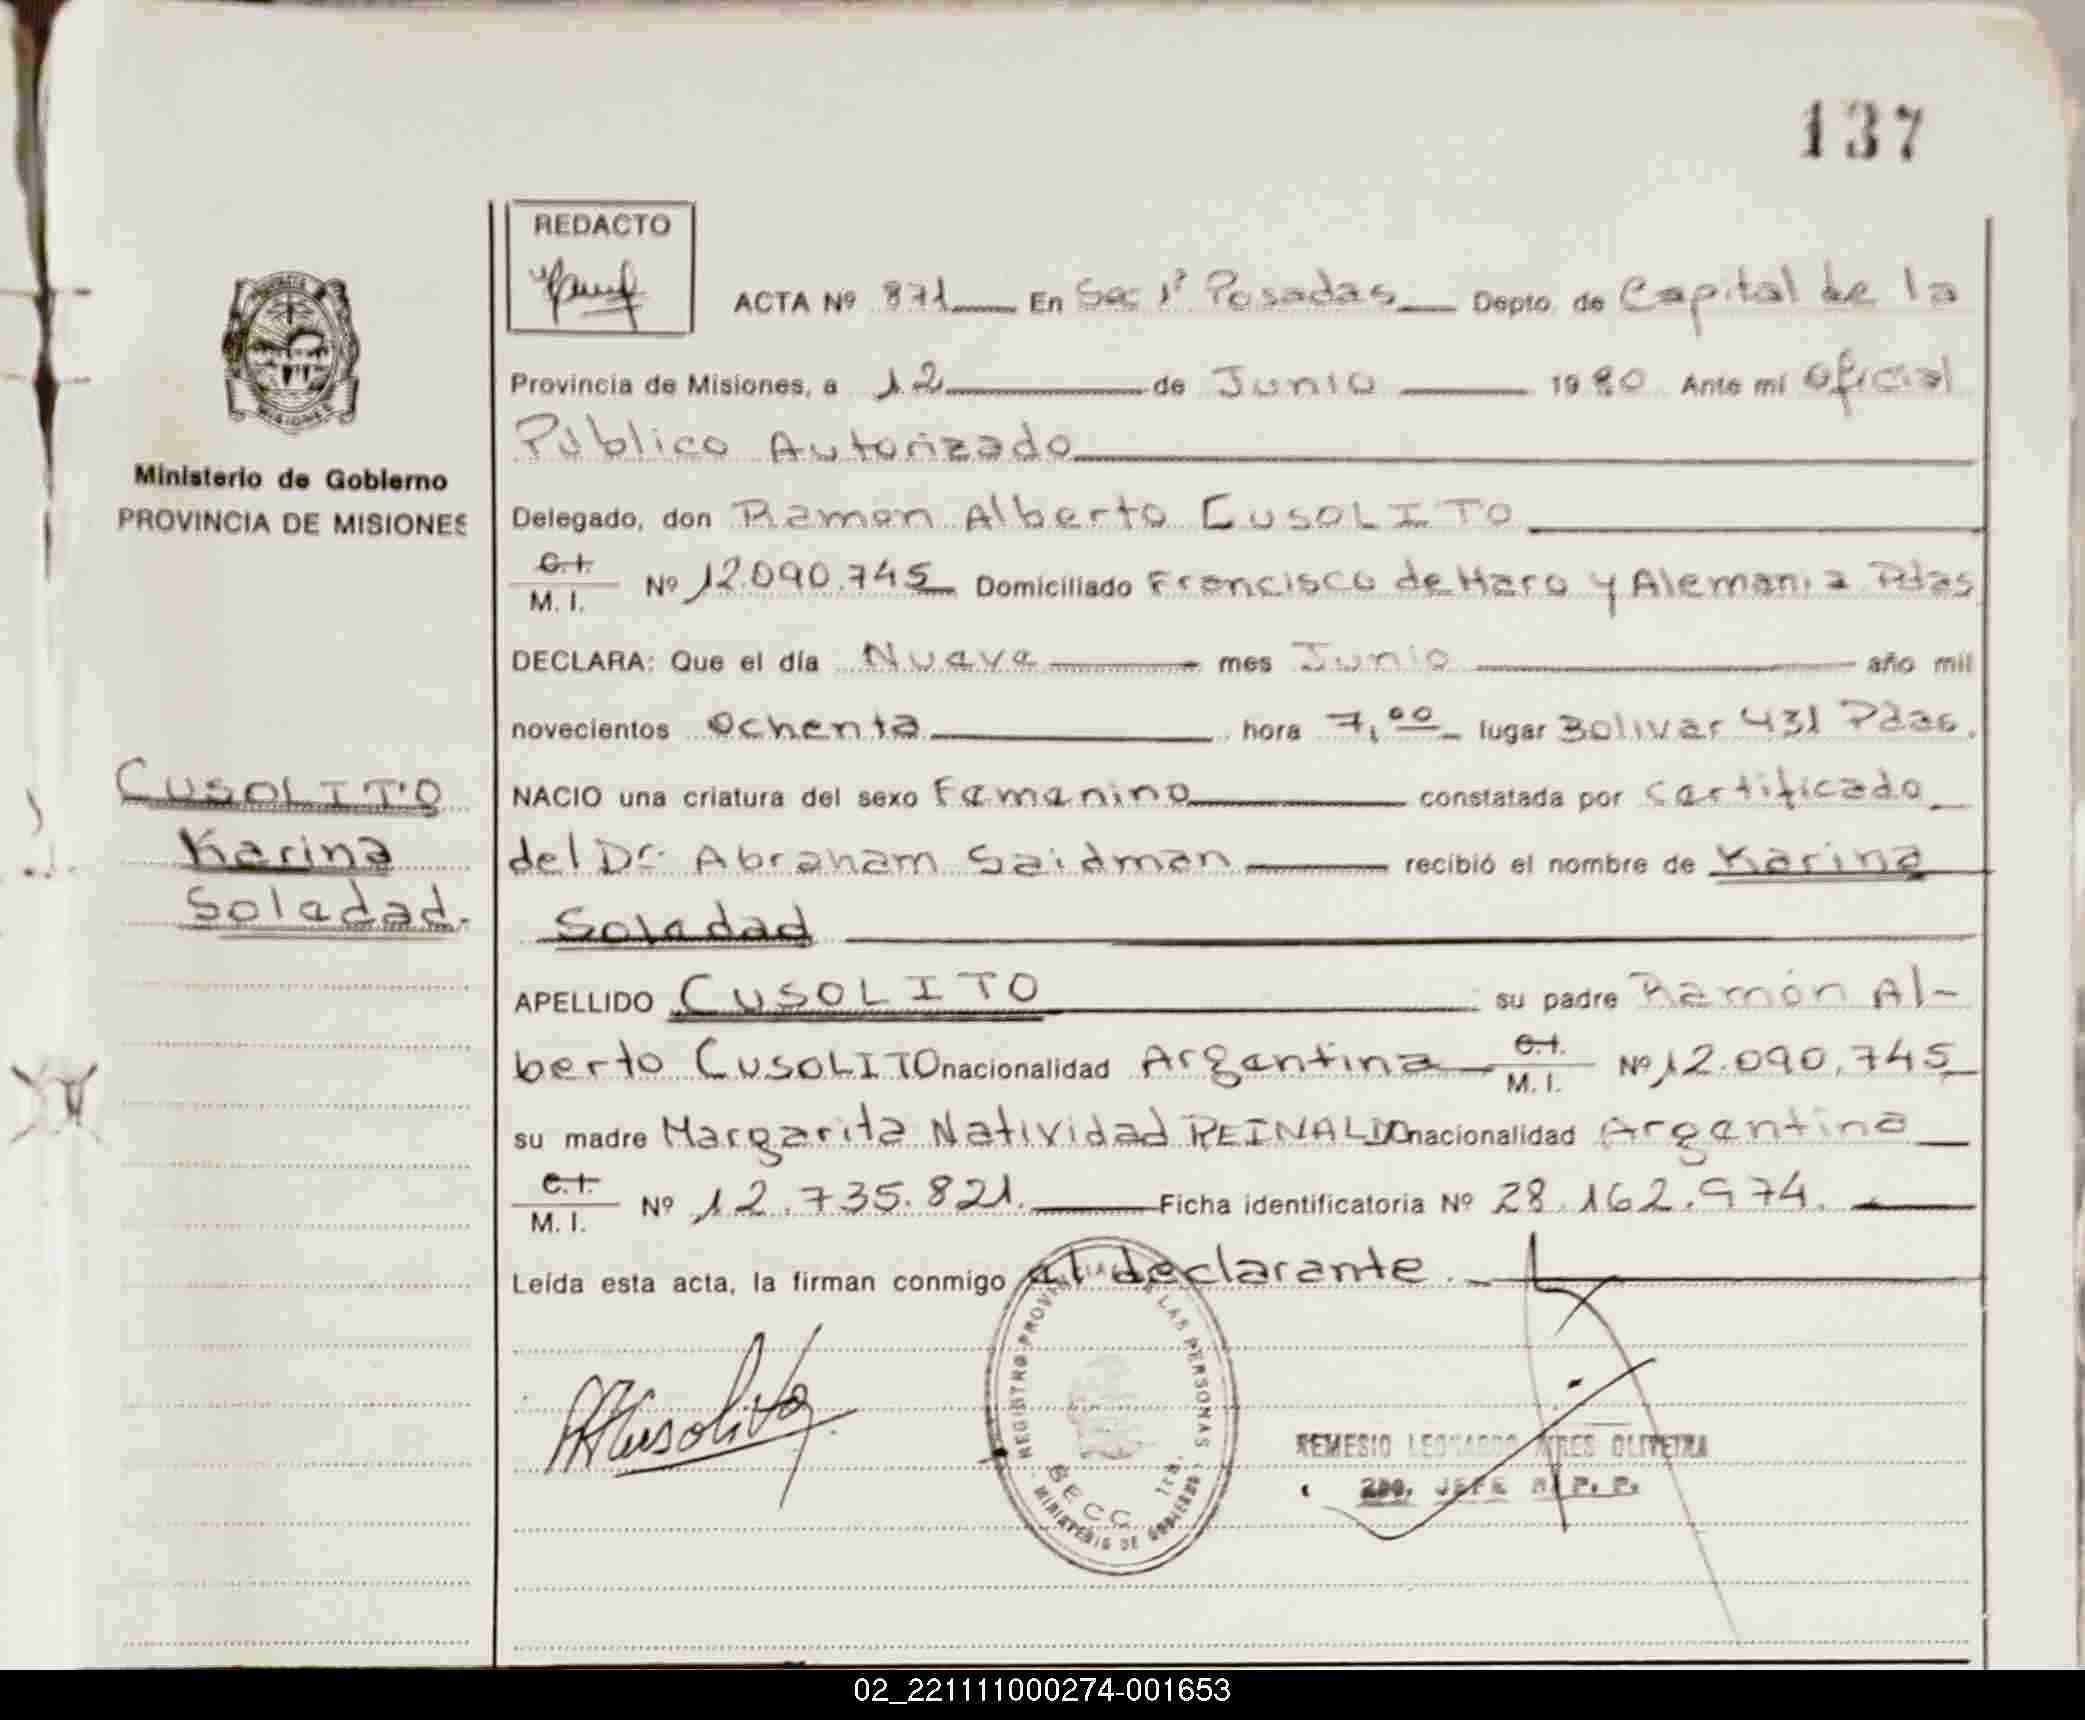 137
REDACTO
ACTA Nº 871 En Sec 1ª Posadas Depto. de Capital de la
Provincia de Misiones, a 12 de Junio 1980 Ante mí Oficial
Público Autorizado
Ministerio de Gobierno
PROVINCIA DE MISIONES
Delegado, don Ramon Alberto CUSOLITO
C.I.
M. I. Nº 12.090.745 Domiciliado Francisco de Haro y Alemania Pdas
DECLARA: Que el día Nueve mes Junio año mil
novecientos Ochenta hora 7,00 lugar Bolivar 431 Pdas.
CUSOLITO
Karina
Soledad.
NACIO una criatura del sexo Femenino constatada por certificado
del Dr. Abraham Saidman recibió el nombre de Karina
Soledad
APELLIDO CUSOLITO su padre Ramón Al-
berto CUSOLITO nacionalidad Argentina C.I.
M. I. Nº 12.090.745
su madre Margarita Natividad REINALDO nacionalidad Argentina
C.I.
M. I. Nº 12.735.821. Ficha identificatoria Nº 28.162.974.
Leída esta acta, la firman conmigo el declarante.
Cusolito
REGISTRO PROVINCIAL DE LAS PERSONAS
SECC. 1ra.
MINISTERIO DE GOBIERNO
REMESIO LEONARDO AIRES OLIVEIRA
2do. JEFE R. P. P.
02_221111000274-001653